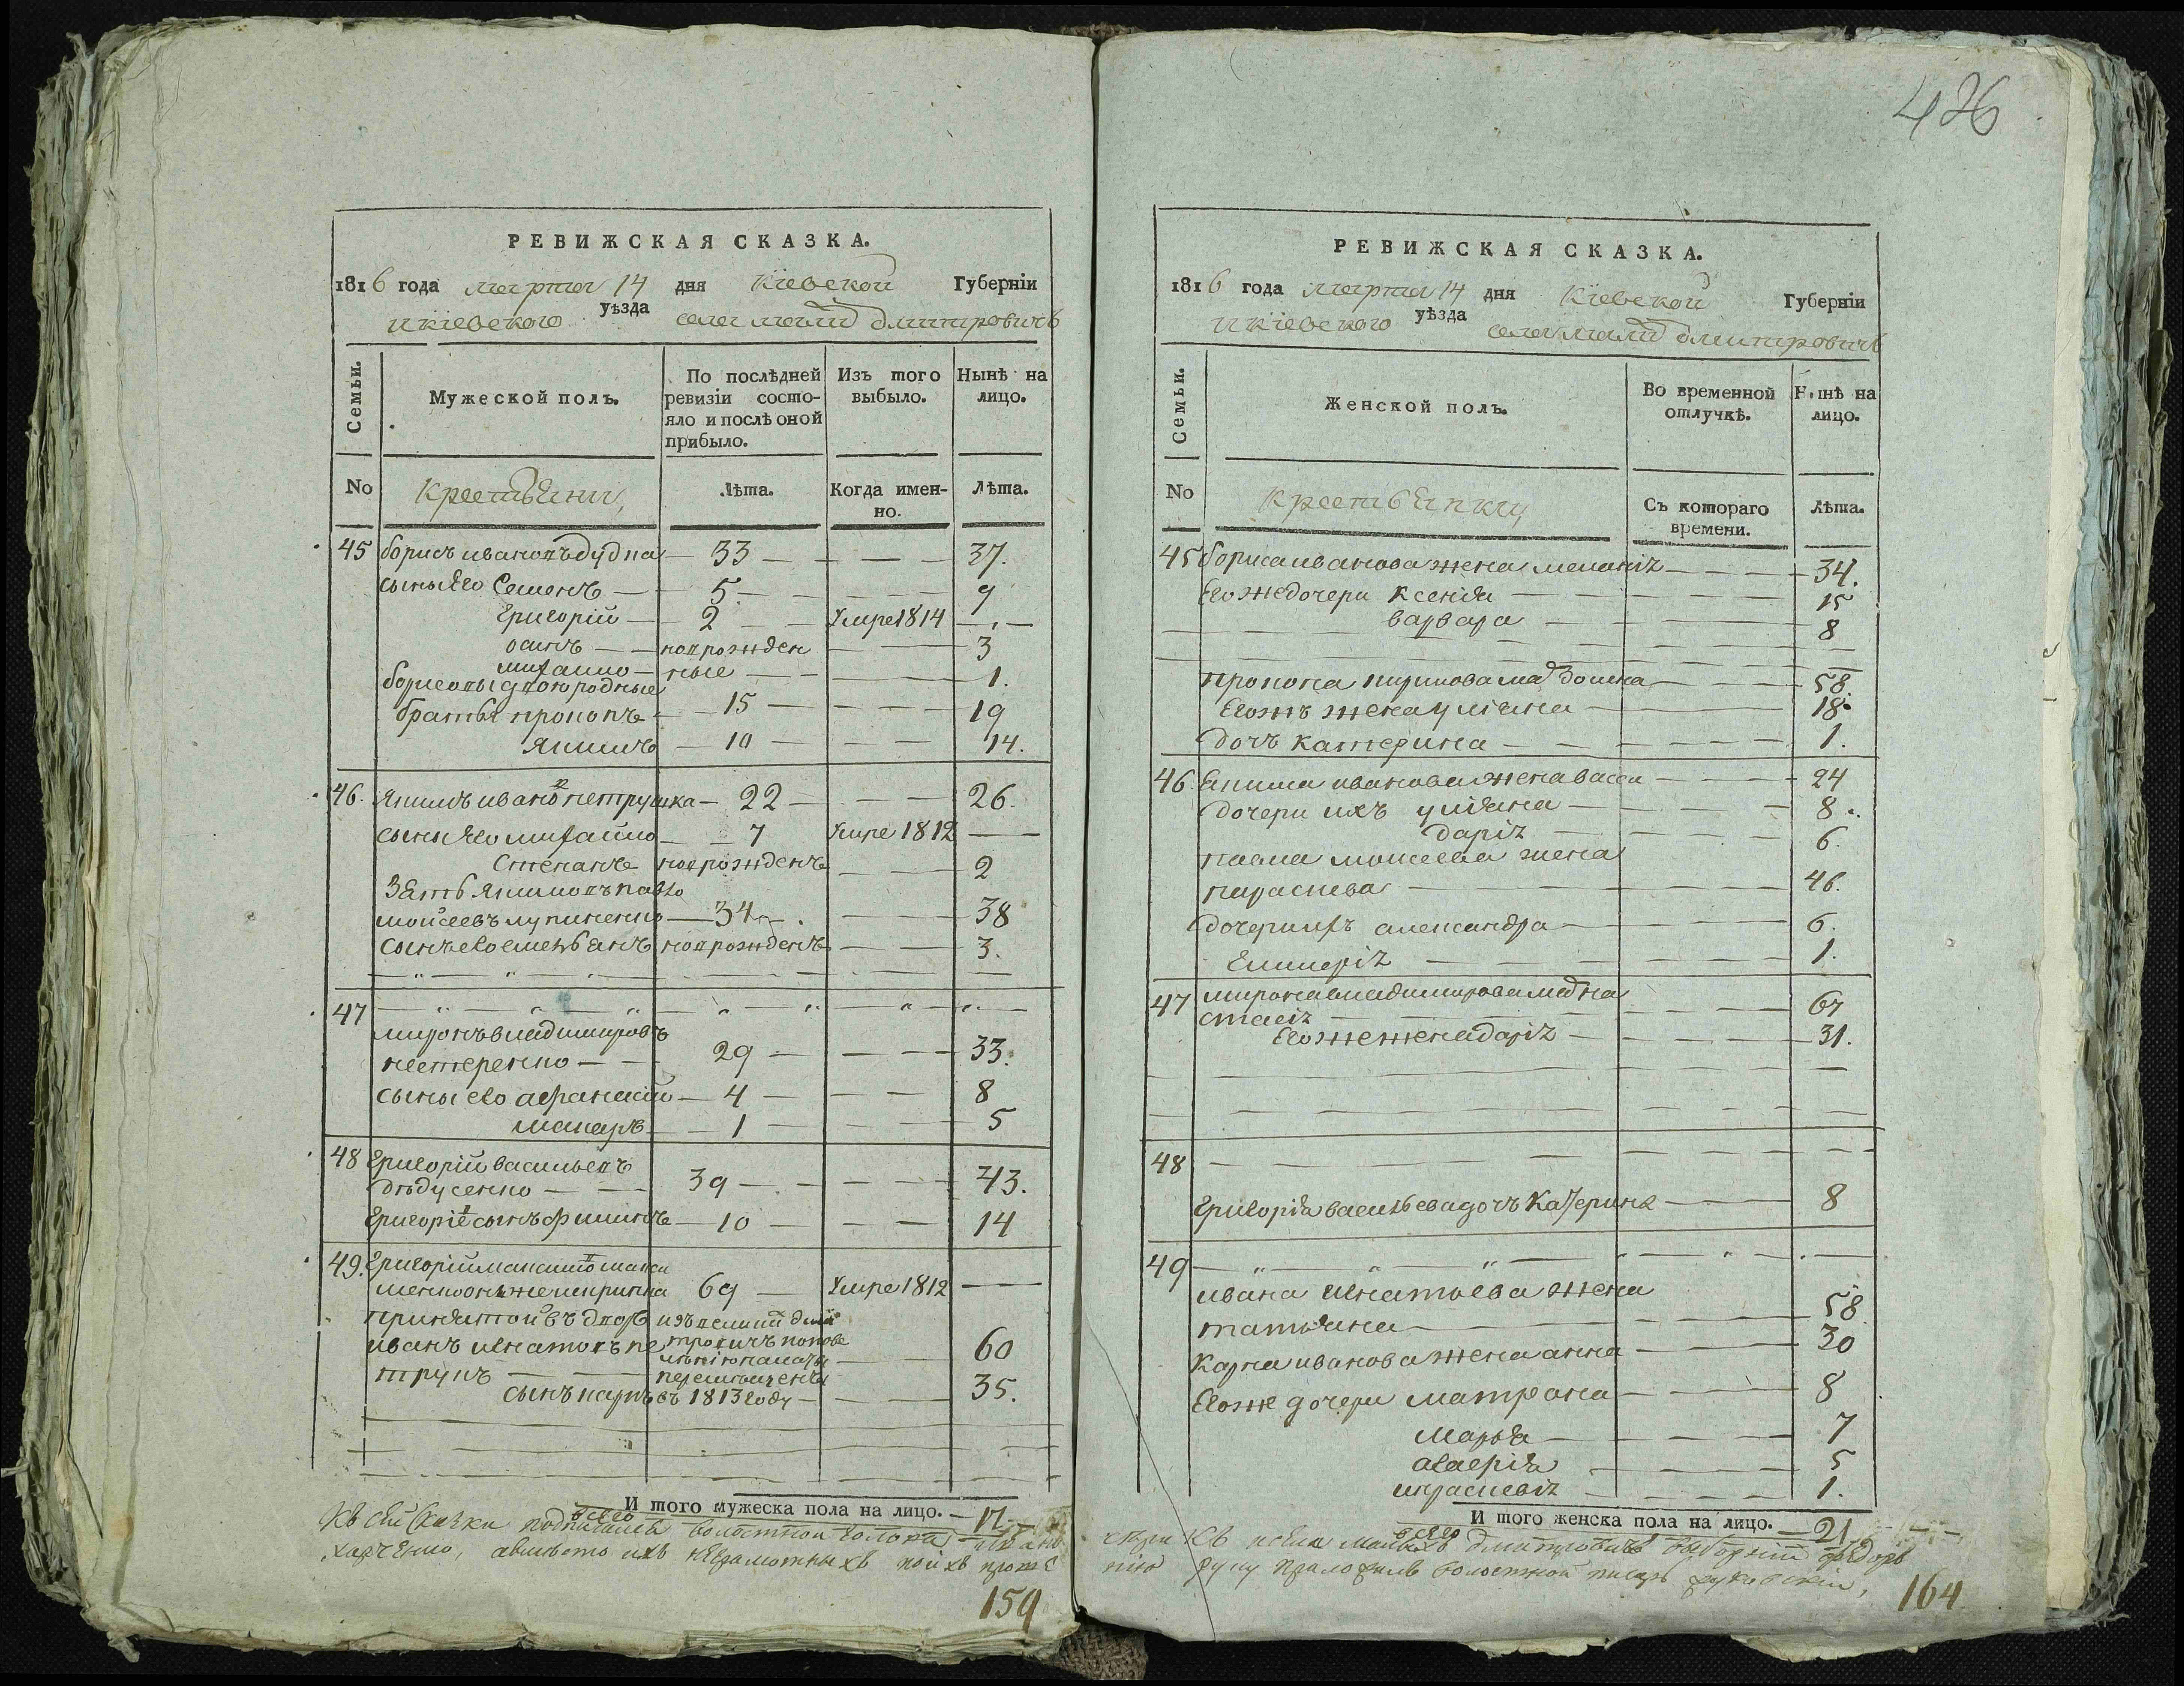 426
РЕВИЖСКАЯ СКАЗКА.
1816 года марта 14 дня Кіевской Губерніи
и кіевского уѣзда села малы дмитровичъ
Семьи.
Мужеской полъ.
По послѣдней ревизіи состо-
яло и послѣ оной
прибыло.
Изъ того
выбыло.
Нынѣ на
лицо.
No
Крестьяни
Лѣта.
Когда имен-
но.
Лѣта.
45 борисъ ивановъ дудка 33 37.
сыны Его Семенъ 5 9
Григорій 2 Умре 1814
осипъ новрожден 3
михайло ные 1.
борисовы двоюродные
братья прокопъ 15 19
Якимъ 10 14.
46. Якимъ ивановъ петрушка 22 26.
сыны Его михайло 7 Умре 1812
Степанъ новрожденъ 2
Зять Якимовъ павло
моисеевъ лупиненко 34 38
сынъ его емельянъ новрожденъ 3.
47
миронъ владимировъ
нестеренко 29 33.
сыны его афанасій 4 8
макаръ 1 5
48 Григорій васильевъ
дѣдусенко 39 43.
Григорія сынъ филипъ 10 14
49. Григорій максимовъ макси
менко онъ же скрипка 69 Умре 1812
принятой въ дворъ изъ
иванъ игнатовъ пе 60
трукъ
сынъ карпъ въ 1813 году 35.
И того мужеска пола на лицо. 17
Къ сей Сказки подписался волостной голова
харченко, а вместо ихъ неграмотныхъ
159
РЕВИЖСКАЯ СКАЗКА.
1816 года марта 14 дня Кіевской Губерніи
и кіевского уѣзда села малы дмитровичъ
Семьи.
Женской полъ.
Во временной
отлучкѣ.
Нынѣ на
лицо.
No
Крестьянки
Съ котораго
времени.
Лѣта.
45 бориса иванова жена меланія 34.
Его же дочери Ксенія 15
варвара 8
прокопа кирилова мать домка 58.
Его жъ жена уліана 18.
дочъ катерина 1.
46 Екима иванова жена васса 24
дочери ихъ уліяна 8.
дарія 6.
павла моисеева жена
параскева 46.
дочери ихъ александра 6.
Гликерія 1.
47 мирона владимирова мать на
стасія 67
Его же жена дарія 31.
48
Григорія васильева дочъ Катерина 8
49
ивана игнатьева жена
татьяна 58.
Карпа иванова жена анна 30
Его же дочери матрона 8
Марья 7
агаерія 5
параскевія 1.
И того женска пола на лицо. 21
малыхъ дмитровичъ выборній федоръ
руку приложилъ волостной писарь
164